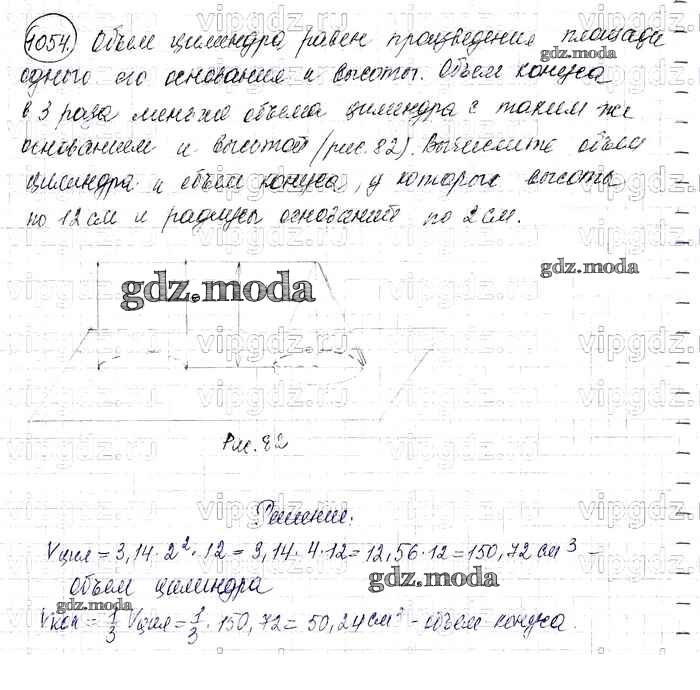 1054. Объем цилиндра равен произведению площади
gdz.moda
одного его основания и высоты. Объем конуса
в 3 раза меньше объема цилиндра с таким же
основанием и высотой (рис. 82). Вычислите объем
цилиндра и объем конуса, у которых высоты
по 12 см и радиусы оснований по 2 см.
gdz.moda
gdz.moda
Рис. 82
Решение.
Vцил = 3,14 · 2² · 12 = 3,14 · 4 · 12 = 12,56 · 12 = 150,72 см³ –
объем цилиндра
gdz.moda
gdz.moda
Vкон = 1/3 Vцил = 1/3 · 150,72 = 50,24 см³ – объем конуса.